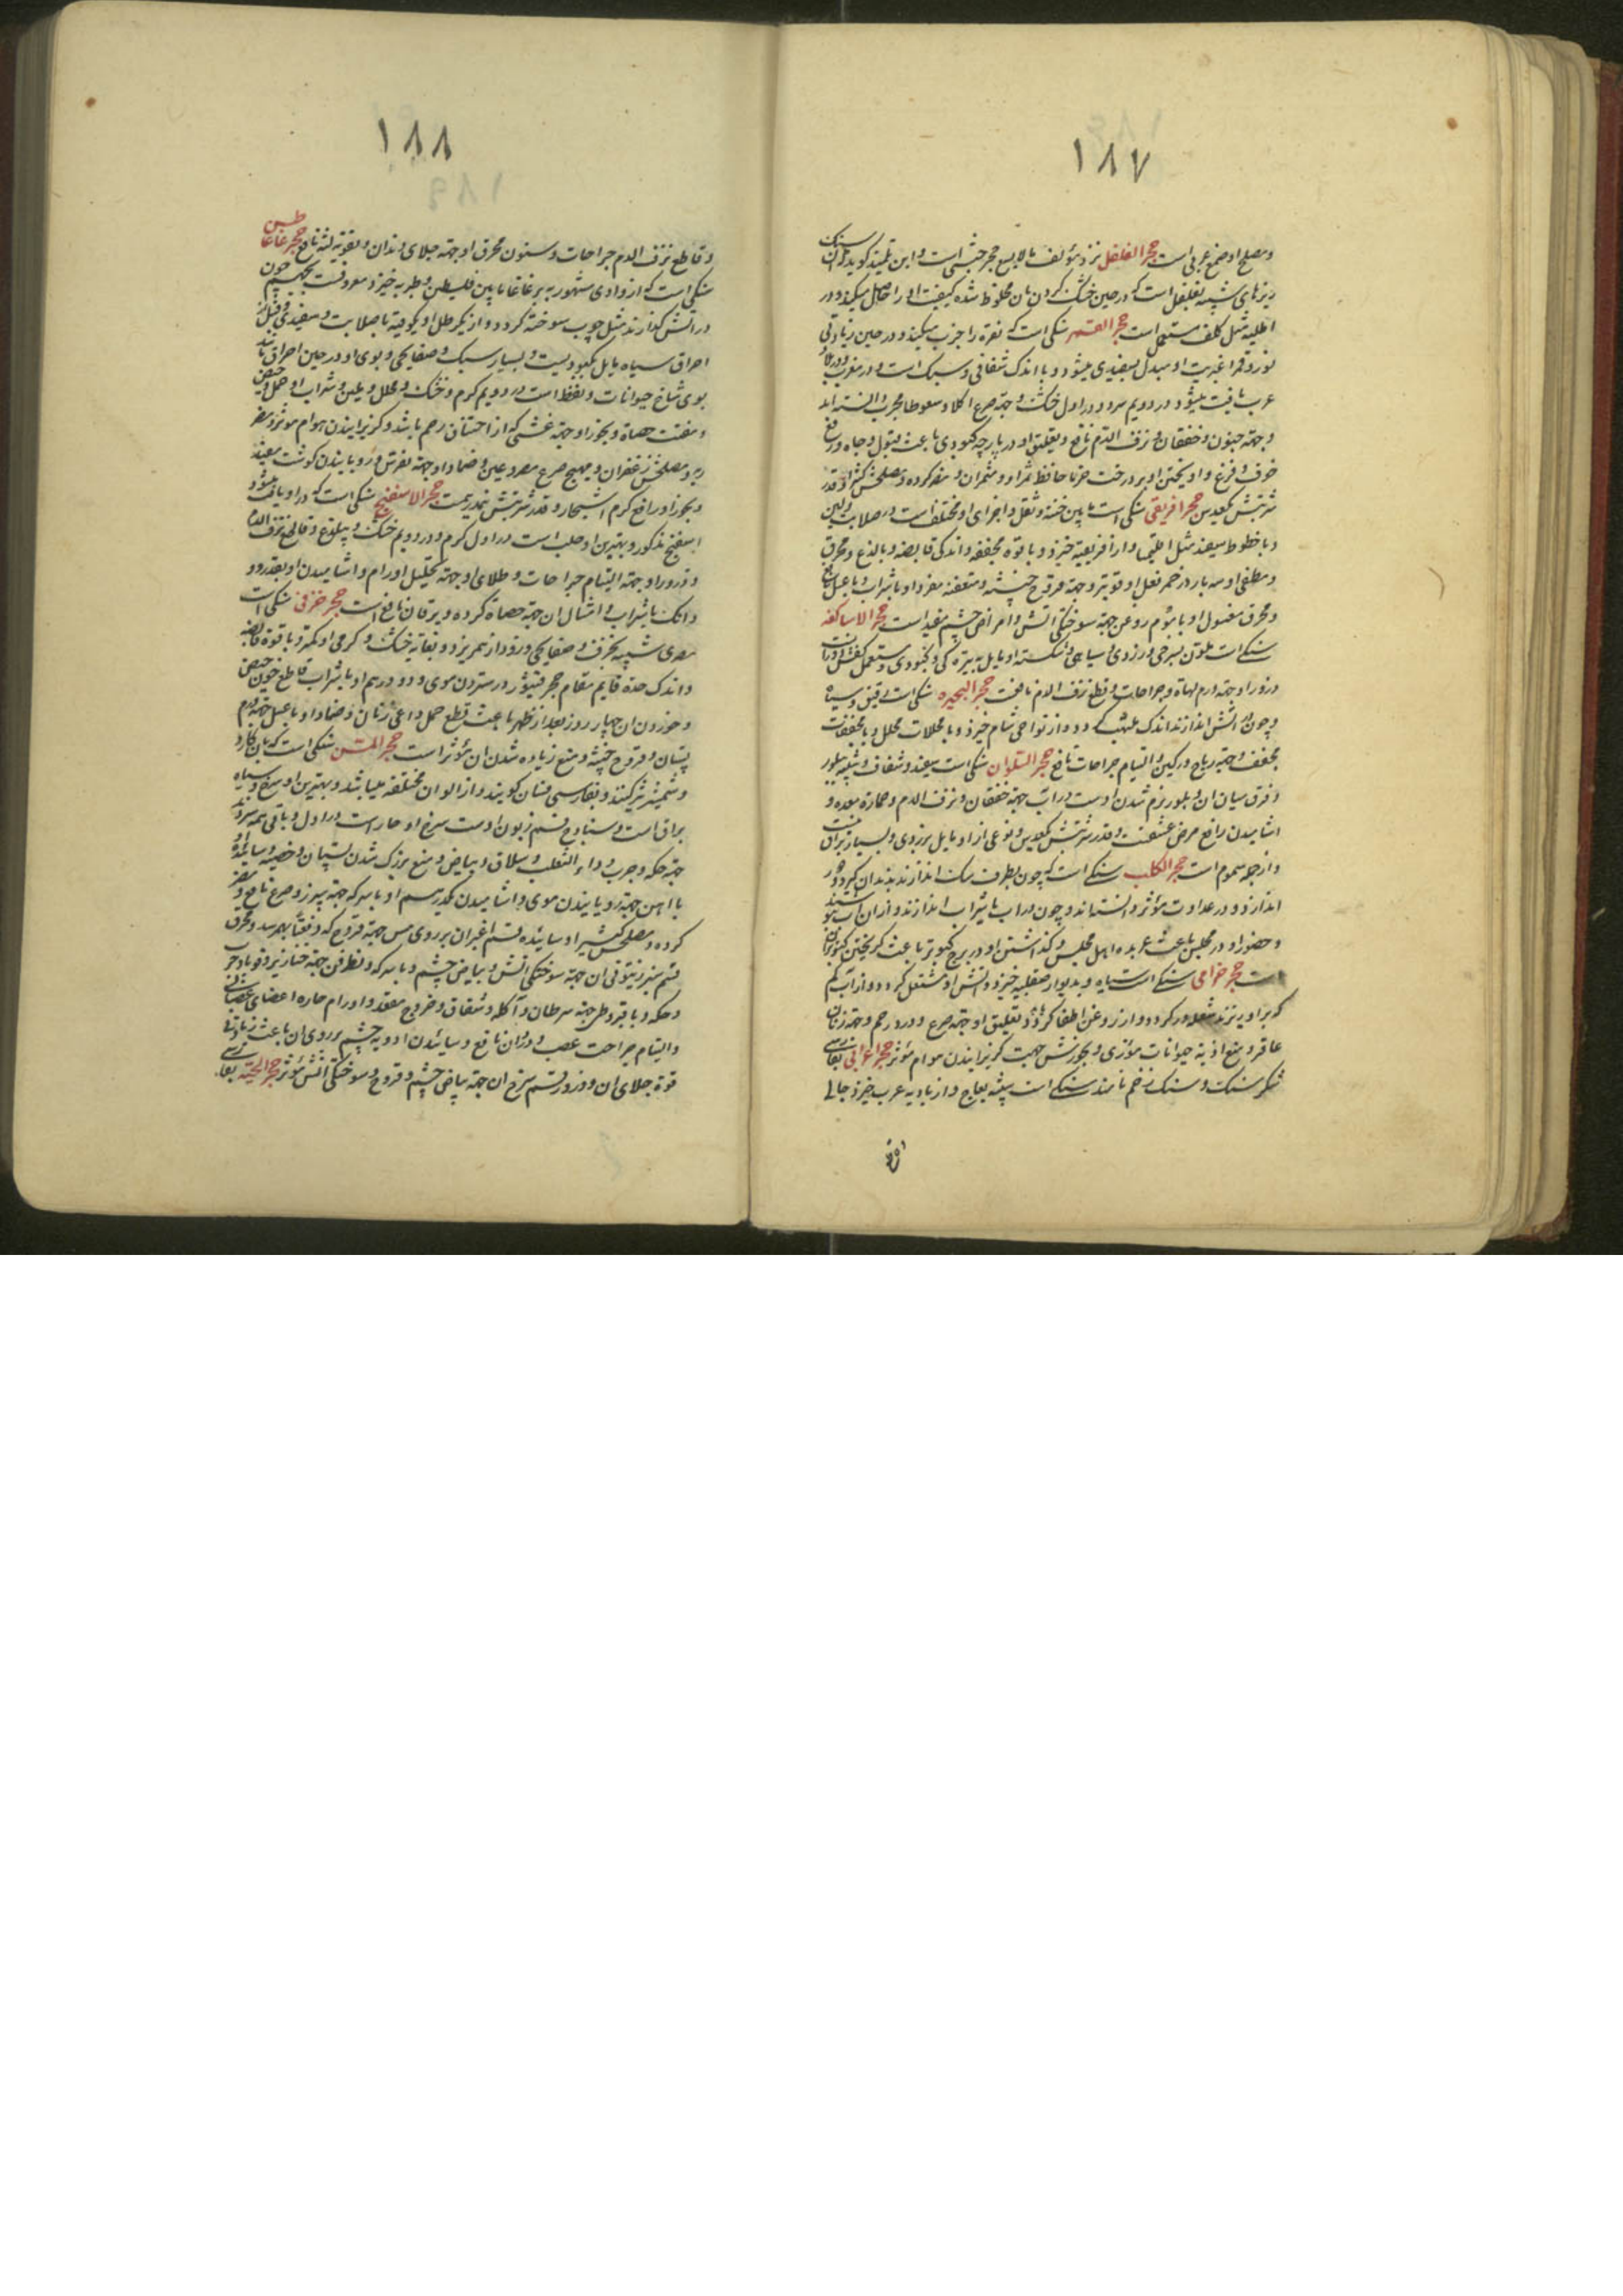 ١٨٧
ومصلح او صمغ عربی است حجر الفلفل نزد مؤلف مالایسع حجر حبشی است و ابن تلمیذ گوید که آن سنک
ریزهای شبیه بفلفل است که در حین خشک کردن بان مخلوط شده کیفیت او را حاصل میکند و در
اطلیه مثل کلف مستعمل است حجر القمر سنکی است که نقره را جذب میکند و در حین زیادتی
نور قمر اغبریت او مبدل بسفیدی میشود و با اندک شفافی و سبک است و در مغرب و بلاد
عرب یافت میشود در دویم سرد و در اول خشک و جهة صرع اکلا و سعوطا مجرب دانسته اند
و جهة جنون و خفقان و نزف الدم نافع و تعلیق او در پارچه کبودی باعث قبول و جاه و رفع
خوف و فزع و اویختن او بر درخت خرما حافظ ثمر او و مثمران و مضر کرده و مصلحش کتیرا و قدر
شربتش یکعدس حجر افریقی سنکی است مابین خفة و ثقل و اجزای او مختلف است در صلابت و لین
و با خطوط سفید مثل اقلیمیا و از افریقیه خیزد و با قوه مجففه و اندکی قابضه و بالذع و محرق
و مطفی او سه بار در خمر فعل او قویتر و جهة قروح خبیثه و متعفنه مفرد او با شراب و با عسل نافع
و محرق مغسول او با موم روغن جهة سوختکی اتش و امراض چشم مفید است حجر الاساکفه
سنکی است ملون بسرخی و زردی و سیاهی و شکسته او مایل به تیره کی و کبودی و مستعمل کفش دوزانست
و ذرور او جهة ورم لهاة و جراحات و قطع نزف الدم نافعست حجر البحیره سنکی است رقیق و سیاه
و چون در اتش اندازند اندک ملتهب کردد و از نواحی شام خیزد و با محللات محلل و با مجففات
مجفف و جهة ریاح و رکبین و التیام جراحات نافع حجر السلوان سنکی است سفید و شفاف و شبیه ببلور
و فرق میان ان و بلور نرم شدن اوست در اب جهة خفقان و نزف الدم و حرارة معده و
اشامیدن رافع مرض عشقست و قدر شربتش یکعدس و نوعی از او مایل بزردی و بسیار براق
و از جمله سموم است حجر الکلب سنکی است که چون بطرف سک اندازند بدندان کیرد و دور
اندازد و در عداوت مؤثر دانسته اند و چون در اب یا شراب اندازند و از ان اب بنوشند
و حضور او در مجلس باعث عربده اهل مجلس و کذاشتن او در برج کبوتر باعث کریختن کبوتران
است حجر خزامی سنکی است سیاه و بدیوار صقلیه خیزد و در اتش او مشتعل کردد و از آب کم
که بر او ریزند شعله ور کردد و از روغن اطفا کردد و تعلیق او جهة صرع و درد رحم و جهة زنان
عاقر و منع اذیة حیوانات موذی و بخورش جهت کریزانیدن هوام مؤثر حجر اعرابی بفارسی
شکر سنک و سنک زخم نامند سنکی است شبیه بعاج و از بادیه عرب خیزد جالی
١٨٨
و قاطع نزف الدم جراحات و سنون محرق او جهة جلای دندان و تقویه لثه نافع حجر غاغاطیس
سنکی است که از وادی مشهور به بر غاغا مابین فلسطین و طبریه خیزد معروفست بجهنم چون
در اتش کذارند مثل چوب سوخته کردد و از یکرطل او یکوقیه با صلابت و سفیدی و قبل از
احراق سیاه مایل بکبودیست و بسیار سبک و صفایحی و بوی او در حین احراق مانند
بوی شاخ حیوانات و نفط است در دویم کرم و خشک و محلل و ملین و شراب او جهة حیض
و مفتت حصاة و بخور او جهة غشی که از اختناق رحم باشد و کریزانیدن هوام مؤثر و مضر
ریه و مصلحش زعفران و مهیج صرع مصروعین و ضماد او جهة نقرس و رویانیدن کوشت مفید
و بخور او رافع کرم اشجار و قدر شربتش نیمدرمست حجر الاسفنج سنکی است که در او یافت میشود
اسفنج مذکور و بهترین او صلب است در اول کرم و در دویم خشک و بیلذع و قاطع نزف الدم
و ذرور او جهة التیام جراحات و طلای او جهة تحلیل اورام و اشامیدن او بقدر دو
دانک با شراب و امثال ان جهة حصاة کرده و یرقان نافع است حجر خزفی سنکی است
مصری شبیه بخزف و صفایحی و زود از هم ریزد و بغایه خشک و کرمی او کمتر و با قوة قابضه
و اندک حده قایم مقام حجر قیشور در ستردن موی و دو درهم او با شراب قاطع خون حیض
و خوردن ان چهار روز بعد از طهر باعث قطع حمل داعی زنان و ضماد او با عسل جهة ورم
پستان و قروح خبیثه و منع زیاده شدن ان مؤثر است حجر المسن سنکی است که بان کارد
و شمشیر تیز کنند و بفارسی فسان کویند و از الوان مختلفه میباشد و بهترین او سرخ و سیاه
براق است و سنبادج قسم زبون اوست سرخ او حار است در اول و باقی همه سرد
جهة حکه و جرب و داء الثعلب و سلاق و بیاض و منع بزرک شدن پستان و خصیه و سائیده او
با اهن جهة رویانیدن موی و اشامیدن یکدرهم او با سرکه جهة سپرز و صرع نافع و مضر
کرده و مصلحش کتیرا و سائیده قسم اغبران بر روی مس جهة قروح که دفعتاً بهم رسد و محرق
قسم سبز زیتونی ان جهة سوختکی اتش و بیاض چشم و با سرکه و نطرون جهة خنازیر و قوبا و جرب
و حکه و با قیروطی جهة سرطان و آکله و شقاق و خروج مقعد و اورام حاره اعضای عصبانی
و التیام جراحت عصب و دران نافع و سائیدن ادویه چشم بر روی ان باعث زیادتی
قوة جلای ان و ذرور قسم سرخ ان جهة بیاض چشم و قروح و سوختکی اتش مؤثر حجر الحیة بفارسی